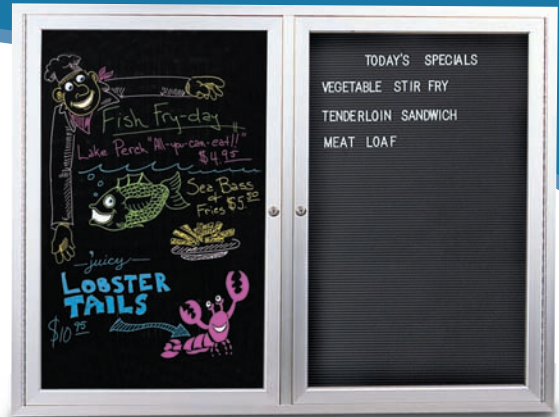 Fish Fry-day
Lake Perch "All-you-can-eat!!"
$4.95
Sea Bass
&
Fries $5.50
juicy
LOBSTER
TAILS
$10.95
TODAY'S SPECIALS
VEGETABLE STIR FRY
TENDERLOIN SANDWICH
MEAT LOAF